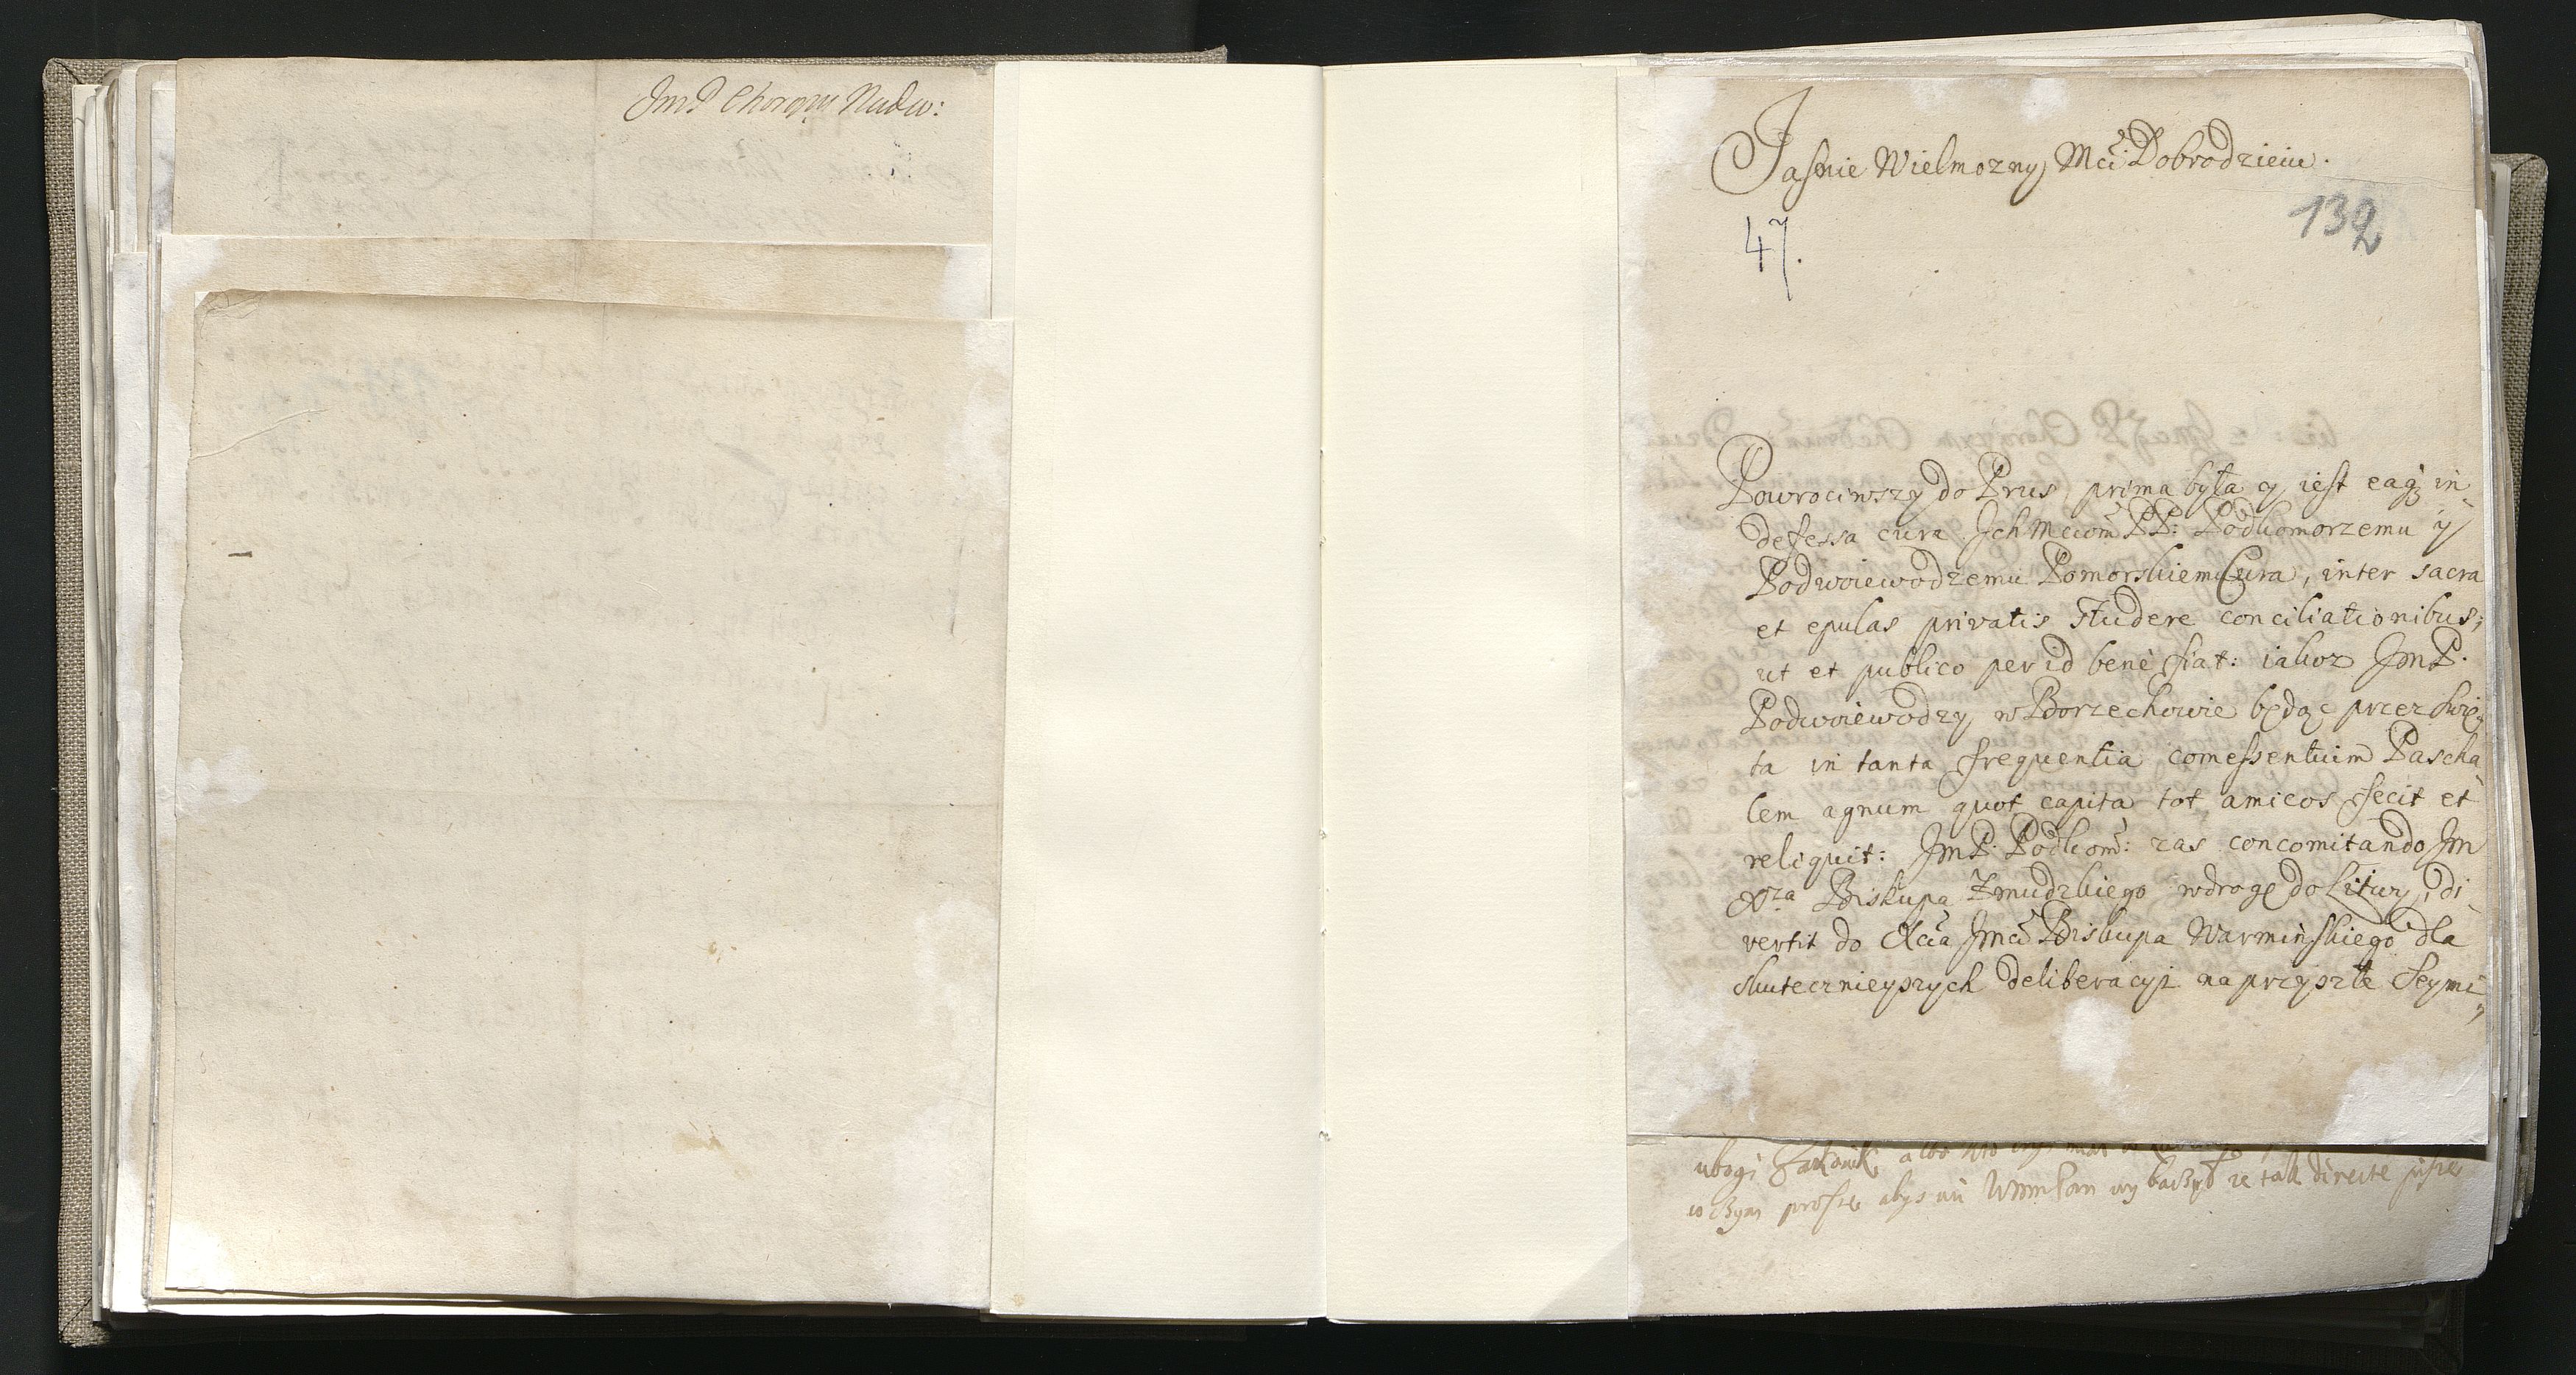 JmP Chorąży Nadw:
Jaśnie Wielmozny Mci Dobrodzieiu.
132
47.
Powrociwszy do Prus, prima była y iest eaq; in-
defessa cura Ich Mciom PP: Podkomorzemu y
Podwoiewodzemu Pomorskiemu Cura, inter sacra
et epulas privatis studere conciliationibus;
ut et publico per id benè fiat: iakoz JmP.
Podwoiewodzy w Borzechowie będąc przez Swię-
ta in tanta frequentia comessentium Pascha-
lem agnum quot capita tot amicos fecit et
reliquit: JmP. Podkom: zas concomitando Jm
Xza Biskupa Zmudzkiego w drogę do Litwy, di-
vertit do Xcia Jmci Biskupa Warminskiego dla
skutecznieyszych deliberacyi na przyszłe Seymi-
ubogi albo kto
w czym prosze abys mi WmmPan wybaczył ze tak directe pisze